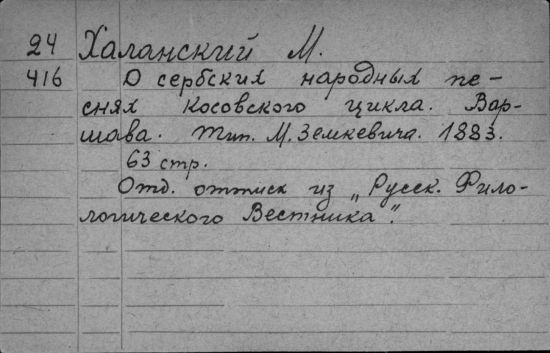 24 Халанский М.
416 О сербских народных пе-
снях Косовского цикла. Вар-
шава. Тип. М. Земкевича. 1883.
63 стр.
Отд. оттиск из „Русск. Фило-
логического Вестника".